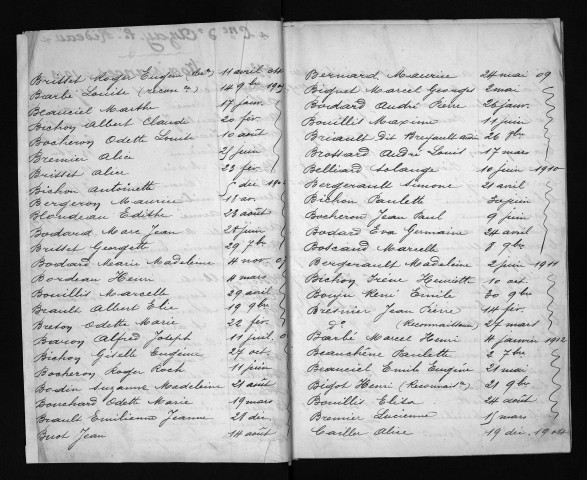 Brisset Roger Eugène 11 avril 04
Barbé Louise (recon.ce) 14 9bre
Beauciel Marthe 17 janv.
Bichon Albert Claude 20 fév.
Bocheron Odette Louise 10 août
Bremier Alice 25 juin
Brisset Alice 23 fév.
Bichon Antoinette déc
Bergeron Maurice 18 av.
Blondeau Edithe 23 août
Bodard Marc Jean 28 juin
Brisset Georgette 29 7bre
Bodard Marie Madeleine 4 nov. 07
Bordeau Henri 4 mars
Bouillis Marcelle 29 avril
Brault Albert Elie 19 9bre
Breton Odette Marie 22 fév.
Baron Alfred Joseph 11 juil.
Bichon Giselle Eugénie 27 oct.
Bocheron Roger Roch 11 juin
Bodin Suzanne Madeleine 21 août
Bouchard Odette Marie 19 mars
Brault Emilienne Jeanne 28 déc.
Buot Jean 14 août
Bernard Maurice 24 mai 09
Biguet Marcel Georges 2 mai
Bodard André Pierre 26 janv.
Bouillis Maxime 11 juin
Briault dit Breffault 26 7bre
Brossard André Louis 17 mars
Belliard Solange 10 juin 1910
Bergerault Simone 21 avril
Bichon Paulette 30 juin
Bocheron Jean Paul 9 juin
Bodard Eva Germaine 24 avril
Boisard Marcelle 8 9bre
Bergerault Madeleine 2 juin 1911
Bichon Irène Henriette 10 oct.
Boyer René Emile 30 9bre
Bresnier Jean Pierre 14 fév.
do (Reconnaissance) 27 mars
Barbé Marcel Henri 4 janvier 1912
Beauchêne Paulette 2 7bre
Beauciel Emile Eugène 21 mai
Bigot Henri (Reconnaisce) 21 9bre
Bouillis Elisa 24 août
Bremier Lucienne 15 mars
Cailler Alice 19 déc.